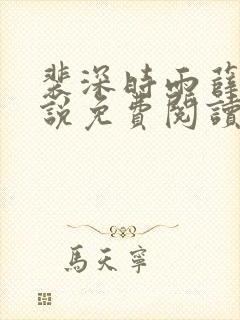 裴深時雨薛
說免費閱讀
馬天寧